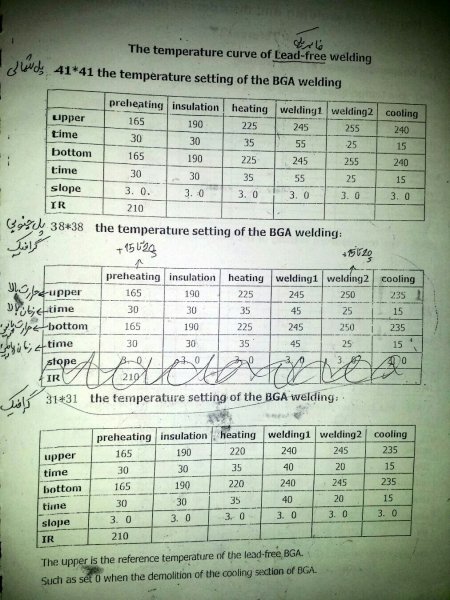 The temperature curve of Lead-free welding
پل شمالی
41*41 the temperature setting of the BGA welding
preheating insulation heating welding1 welding2 cooling
upper 165 190 225 245 255 240
time 30 30 35 55 25 15
bottom 165 190 225 245 255 240
time 30 30 35 55 25 15
slope 3. 0. 3. 0 3. 0 3. 0 3. 0 3. 0
IR 210
پل جنوبی
گرافیک
38*38 the temperature setting of the BGA welding:
preheating insulation heating welding1 welding2 cooling
upper 165 190 225 245 250 235
time 30 30 35 45 25 15
bottom 165 190 225 245 250 235
time 30 30 35 45 25 15
slope 3. 0 3. 0 3. 0 3. 0 3. 0 3. 0
IR 210
گرافیک
31*31 the temperature setting of the BGA welding:
preheating insulation heating welding1 welding2 cooling
upper 165 190 220 240 245 235
time 30 30 35 40 20 15
bottom 165 190 220 240 245 235
time 30 30 35 40 20 15
slope 3. 0 3. 0 3. 0 3. 0 3. 0 3. 0
IR 210
The upper is the reference temperature of the lead-free BGA.
Such as set 0 when the demolition of the cooling section of BGA.